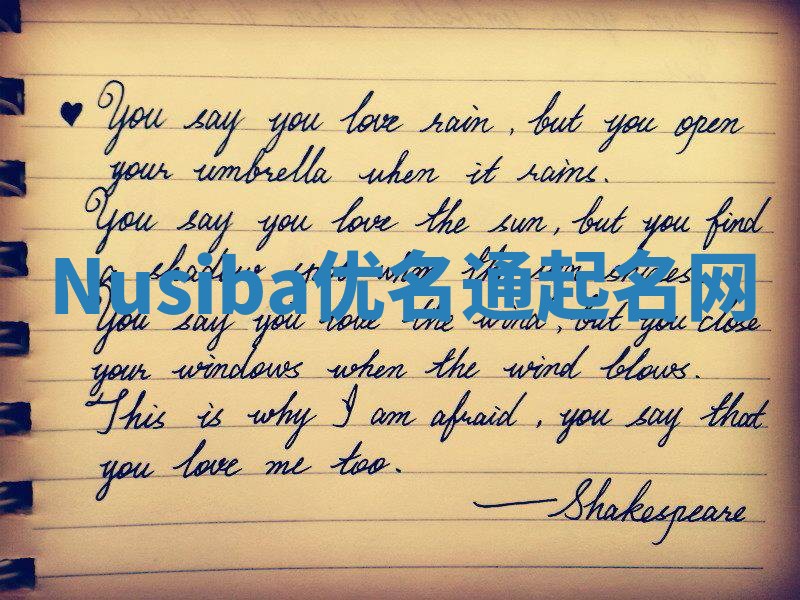 ♥ You say you love rain, but you open
your umbrella when it rains.
You say you love the sun, but you find
a shadow spot when the sun shines.
Nusiba优名通起名网
You say you love the wind, but you close
your windows when the wind blows.
This is why I am afraid, you say that
you love me too.
—Shakespeare